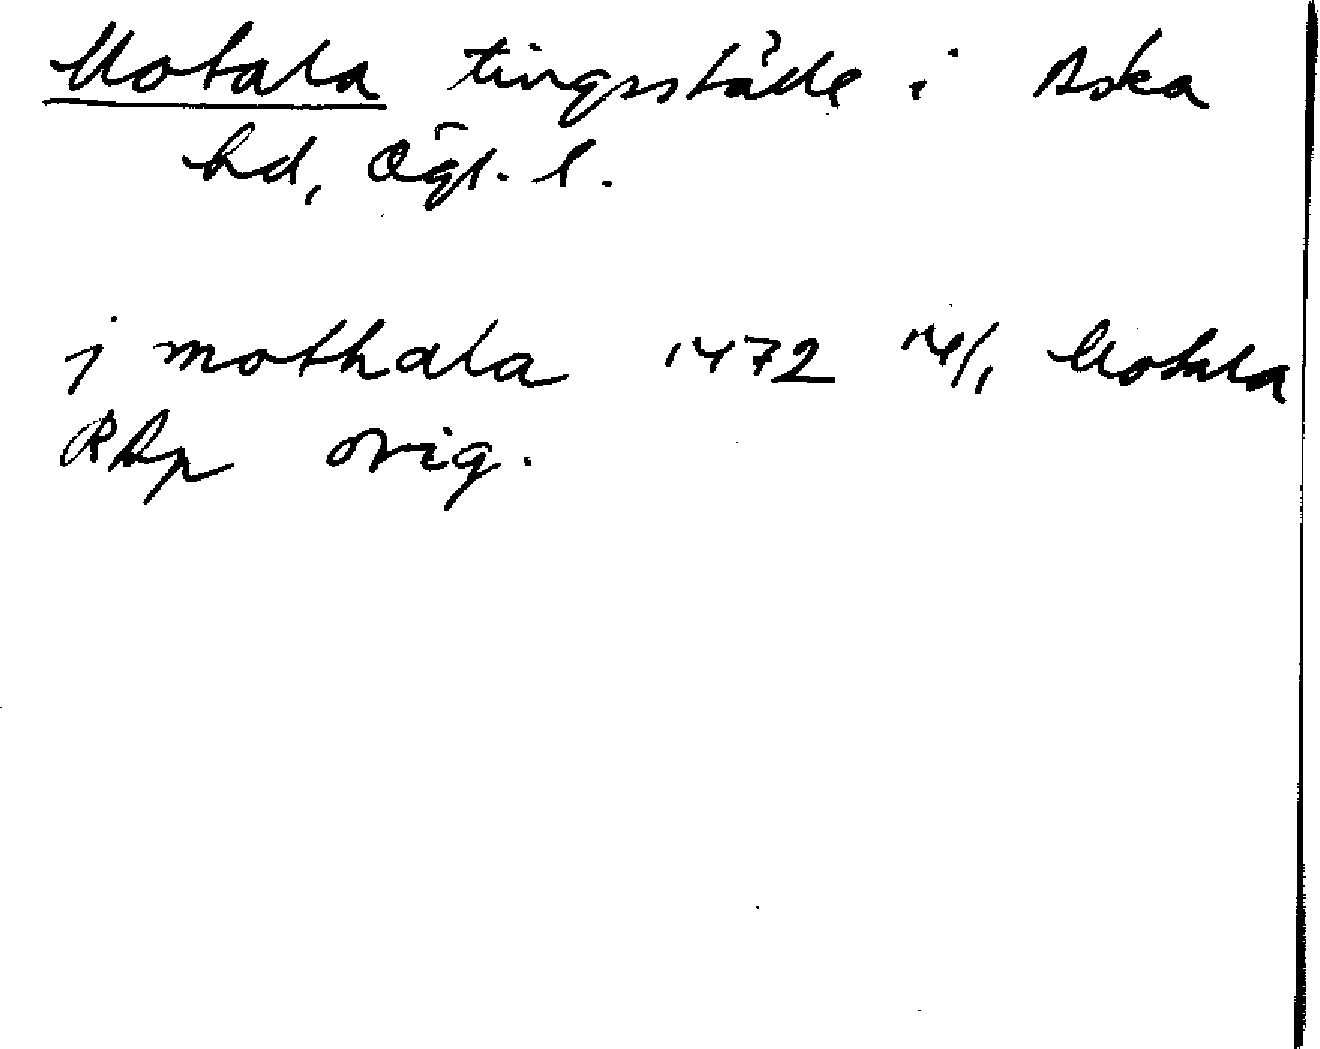 Motala tingsställe i Aska
hd, Ögl. l.
j mothala 1472 14/1 Motala
RAp orig.